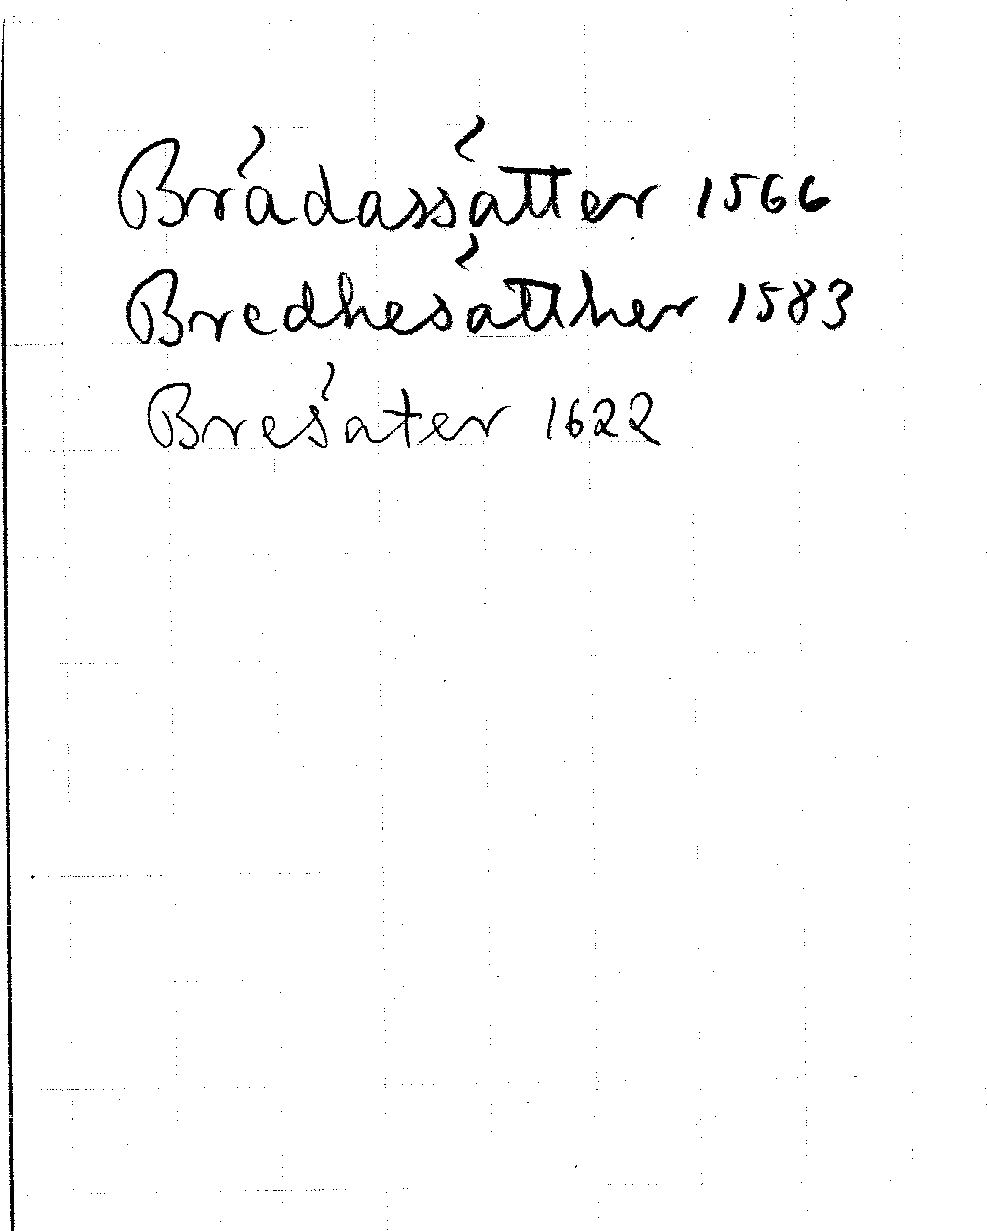 Brådassåtter 1566
Bredhesåtther 1583
Bresåter 1622